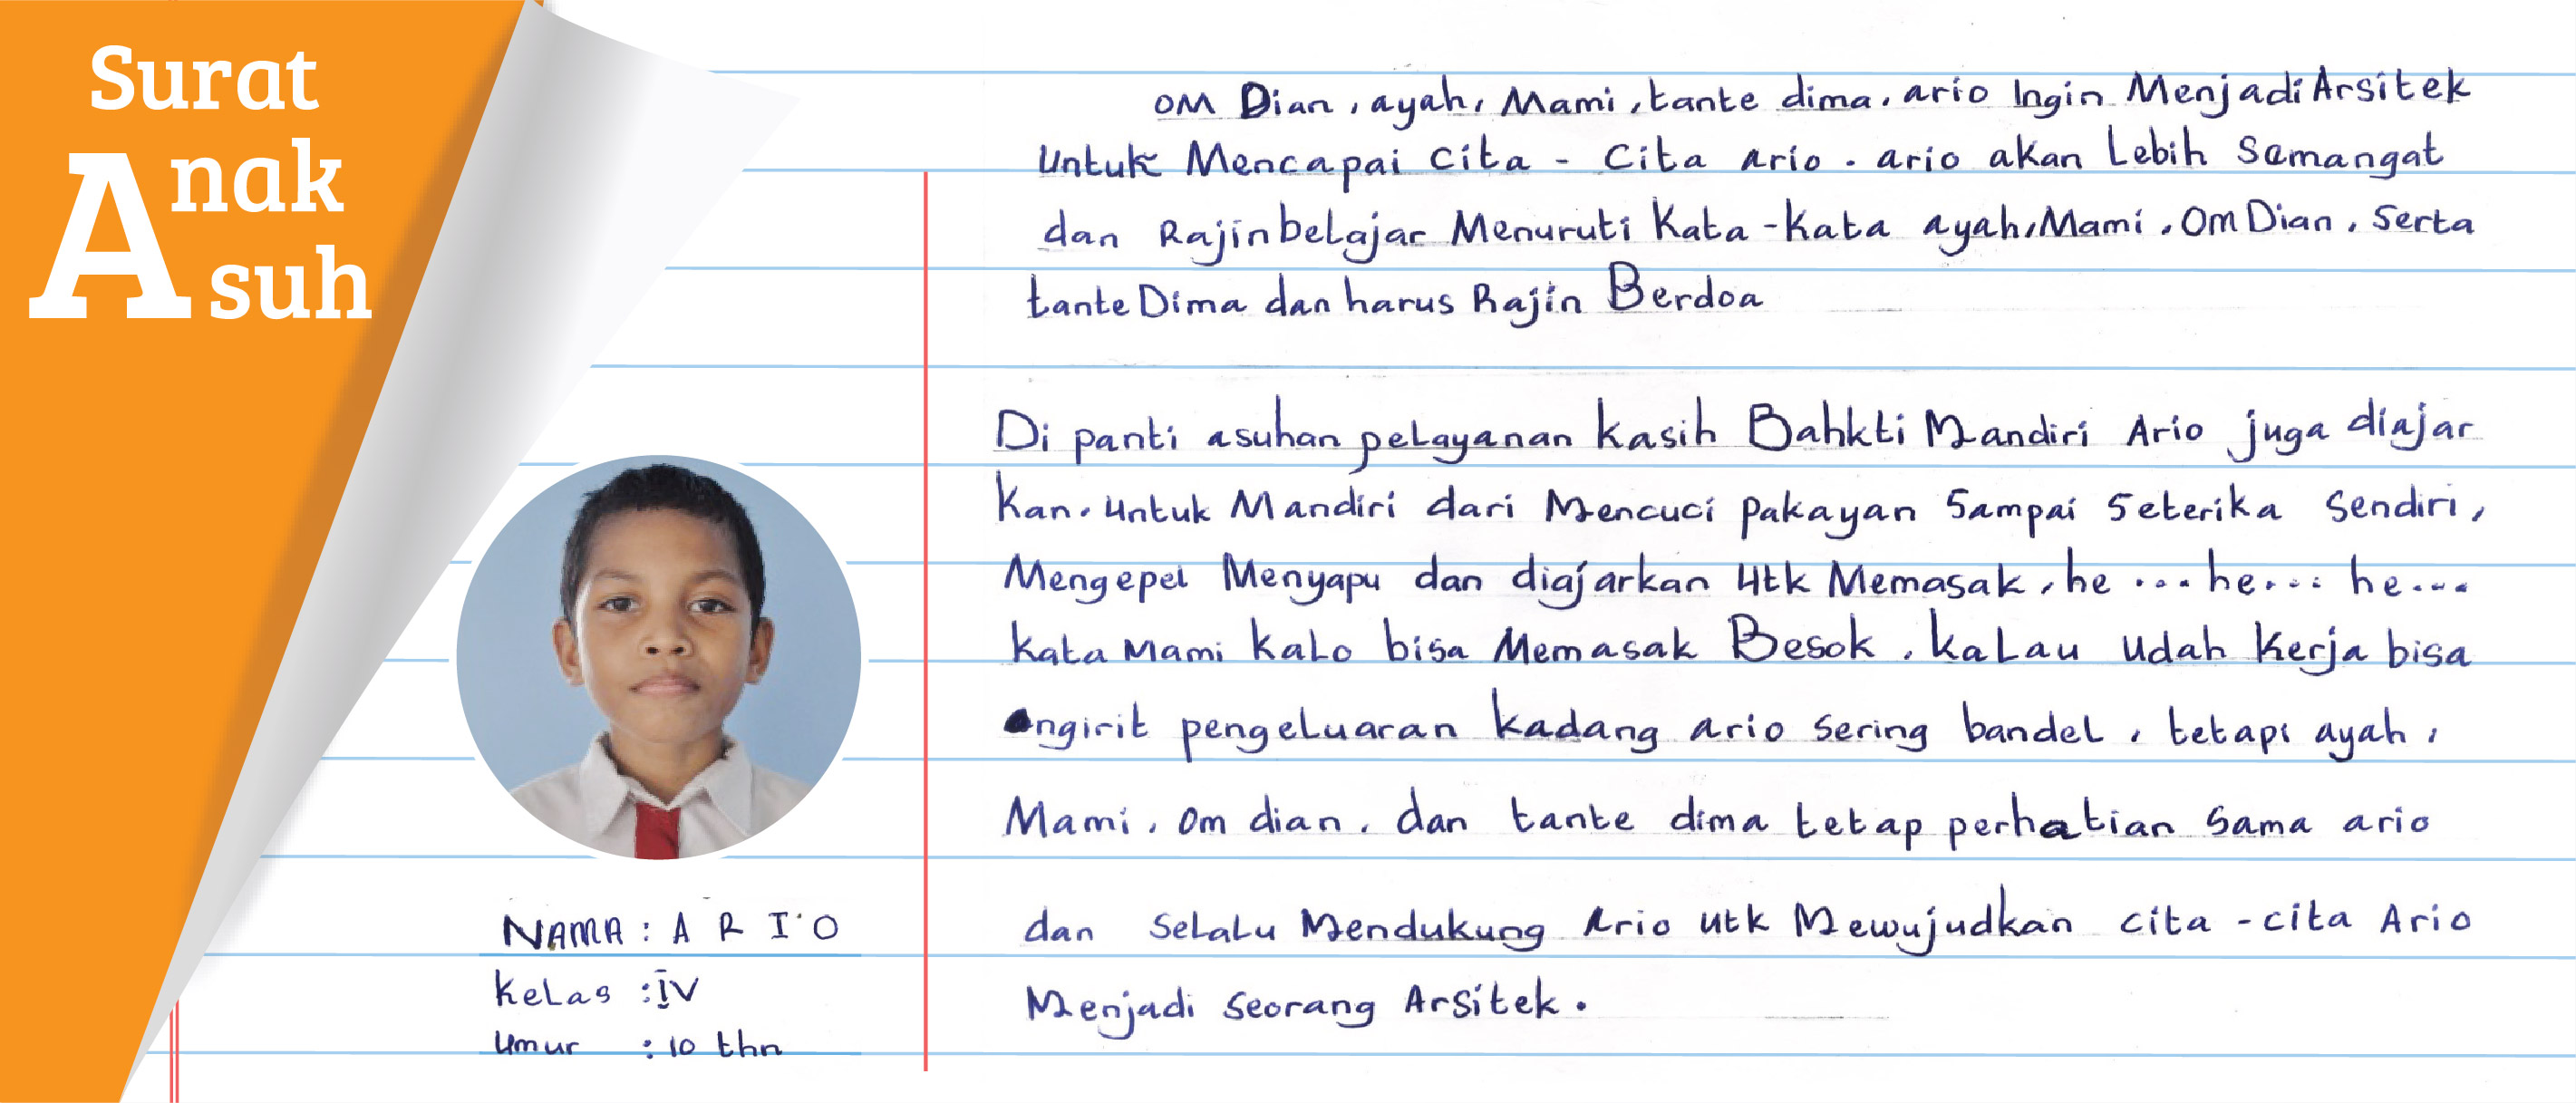 Surat
Anak
Asuh
OM Dian, ayah, Mami, tante dima, ario Ingin Menjadi Arsitek
Untuk Mencapai cita - Cita ario. ario akan Lebih Semangat
dan Rajin belajar Menuruti Kata-Kata ayah, Mami, Om Dian, Serta
tante Dima dan harus Rajin Berdoa
Di panti asuhan peLayanan kasih Bahkti Mandiri Ario juga diajar
Kan. Untuk Mandiri dari Mencuci pakayan Sampai Seterika Sendiri,
Mengepel Menyapu dan diajarkan Utk Memasak, he ... he... he...
kata Mami kaLo bisa Memasak Besok, kaLau udah Kerja bisa
ngirit pengeLuaran kadang ario sering bandeL, tetapi ayah,
Mami, Om dian, dan tante dima tetap perhatian Sama ario
dan SeLaLu Mendukung Ario utk Mewujudkan cita-cita Ario
Menjadi Seorang Arsitek.
NAMA : ARIO
KeLas : IV
Umur : 10 thn